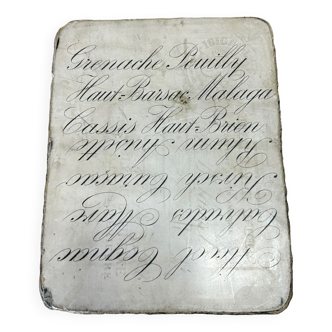 Grenache Pouilly
Haut-Barsac, Malaga
Cassis Haut-Brion
Rhum Anisette
Kirsch Curaçao
Calvados Marc
Cognac